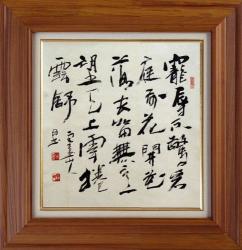 寵辱不驚看
庭前花開花
落去留無意
望天上雲捲
雲舒